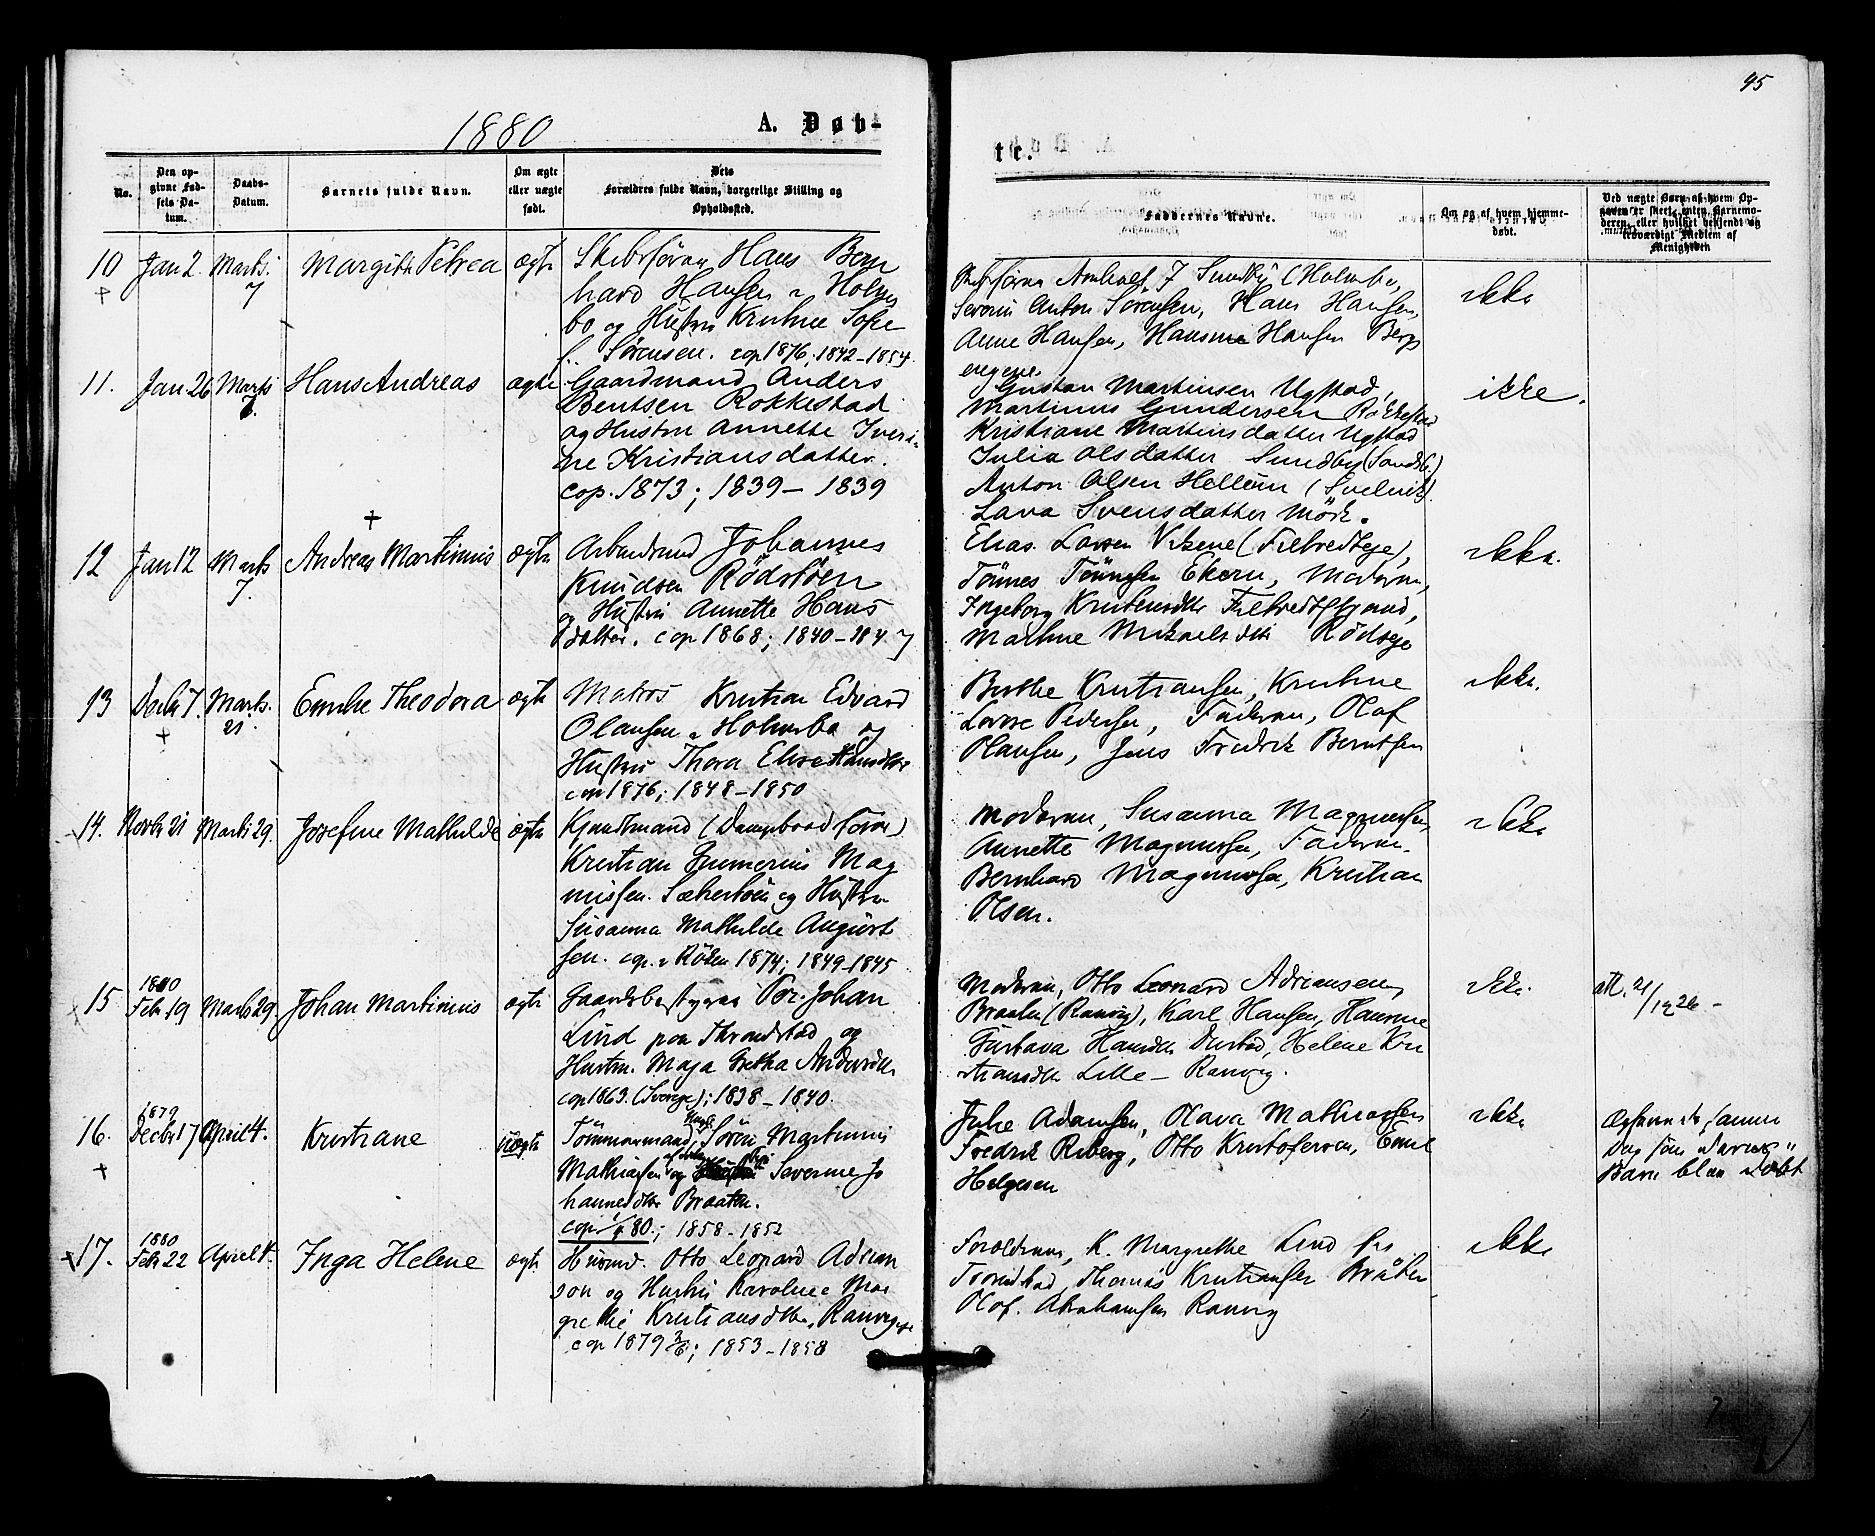 45
1880
A. Døb-
te.
No.
Den op-
givne Fød-
sels Da-
tum.
Daabs-
Datum.
Barnets fulde Navn.
Om ægte
eller uægte
født.
Dets
Forældres fulde Navn, borgerlige Stilling og
Opholdssted.
Faddernes Navne.
Om og af hvem hjemme-
døbt.
Ved uægte Børn af hvem Op-
gaven er skeet, enten Barnemo-
deren, eller hvilket bekjendt og
troværdigt Medlem af
Menigheden
10 Jan 2. Marts 7 Margith Petrea ægte
Skibsfører Hans Bern
hard Hansen Holms
bo og Hustru Kristine Sofie
f. Sørensen. cop 1876; 1842-1854.
Skibsfører Sundby (Holmsbo,
Severin Anton Sørensen, Hans Hansen,
Anne Hansen, Hansine Hansen Bergs
engene
ikke
11. Jan 26 Marts 7. Hans Andreas ægte
Gaardmand Anders
Bentsen Rokkestad
og Hustru Annette Iveri-
ne Kristiansdatter.
cop. 1873; 1839 - 1839
Gustav Martinsen Ugstad,
Martinus Gundersen Rokkestad
Kristiane Martinsdatter Ugstad
Julia Olsdatter Sundby (Sandsb.)
Anton Olsen Hellum (Svelvik).
Lava Svensdatter Mørk.
ikke.
12 Jan 12 Marts 7. Andreas Martinius ægte
Arbeidsmd Johannes
Knudsen Rödstöen
og Hustru Annette Hans
datter. cop 1868; 1840-1847
Elias Larsen Viksene (Filtvedteje),
Tönnes Tönnesen Ekern, Moderen,
Ingeborg Kristensdtr Filtvedt
Marthine Mikaelsdtr Rödseje
ikke.
13 Decbr 7. Marts. 21. Emilie Theodora ægte
Matros Kristian Edvard
Olausen Holmsbo og
Hustru Thora Elise Hansdtr
cop 1876; 1848-1850
Berthe Kristiansen, Kristine
Lovise Pedersen, Faderen, Olaf
Olausen, Jens Fredrik Berntsen
ikke.
14. Novbr 21 Marts 29. Josefine Mathilde ægte
Kjendtmand (Dampbaadfører)
Kristian Mag
nussen. Sætertöien og Hustru
Susanna Mathilde August
sen. cop. i Röken 1874; 1849-1845
Moderen, Susanna Magnussen,
Annette Magnussen, Faderen.
Bernhard Magnussen, Kristian
Olsen.
ikke
15 1880 Febr 19 Marts 29. Johan Martinius ægte
Gaardsbestyrer Per Johan
Lind paa Throndstad og
Hustru. Maja Gretha Andersdtr
cop 1863. (Sverige); 1838 - 1840.
Moderen, Otto Leonard Adriansen,
Braaten (Ramvig), Karl Hansen, Hansine
Gustava Hansdtr Hustad, Helene Kri
stiansdtr Lille - Ramvig.
ikke.
att. 21/19 26 -
16. 1879 Decbr 17 April 4. Kristiane uægte
Tömmermand, Ungk. Sören Martinius
Mathiasen og Pige Severine Jo
hannesdtr Braaten.
cop 80.; 1858-1852
Julie Adamsen, Olava Mathiasen
Fredrik Reberg, Otto Kristofersen, Emil
Helgesen
ikke.
samme
Dag som
Barn blev döbt
17. 1880 Febr 22 April 4. Inga Helene ægte
Husmd. Otto Leonard Adrian
sen og Hustru Karoline Mar
grethe Kristiansdtr, Ramvigeje
cop 1879; 1853-1858
Foreldrene, K. Margrethe Lind fra
Trondstad, Thomas Kristiansen Bråten
Olof. Abrahamsen Ramvig
ikke